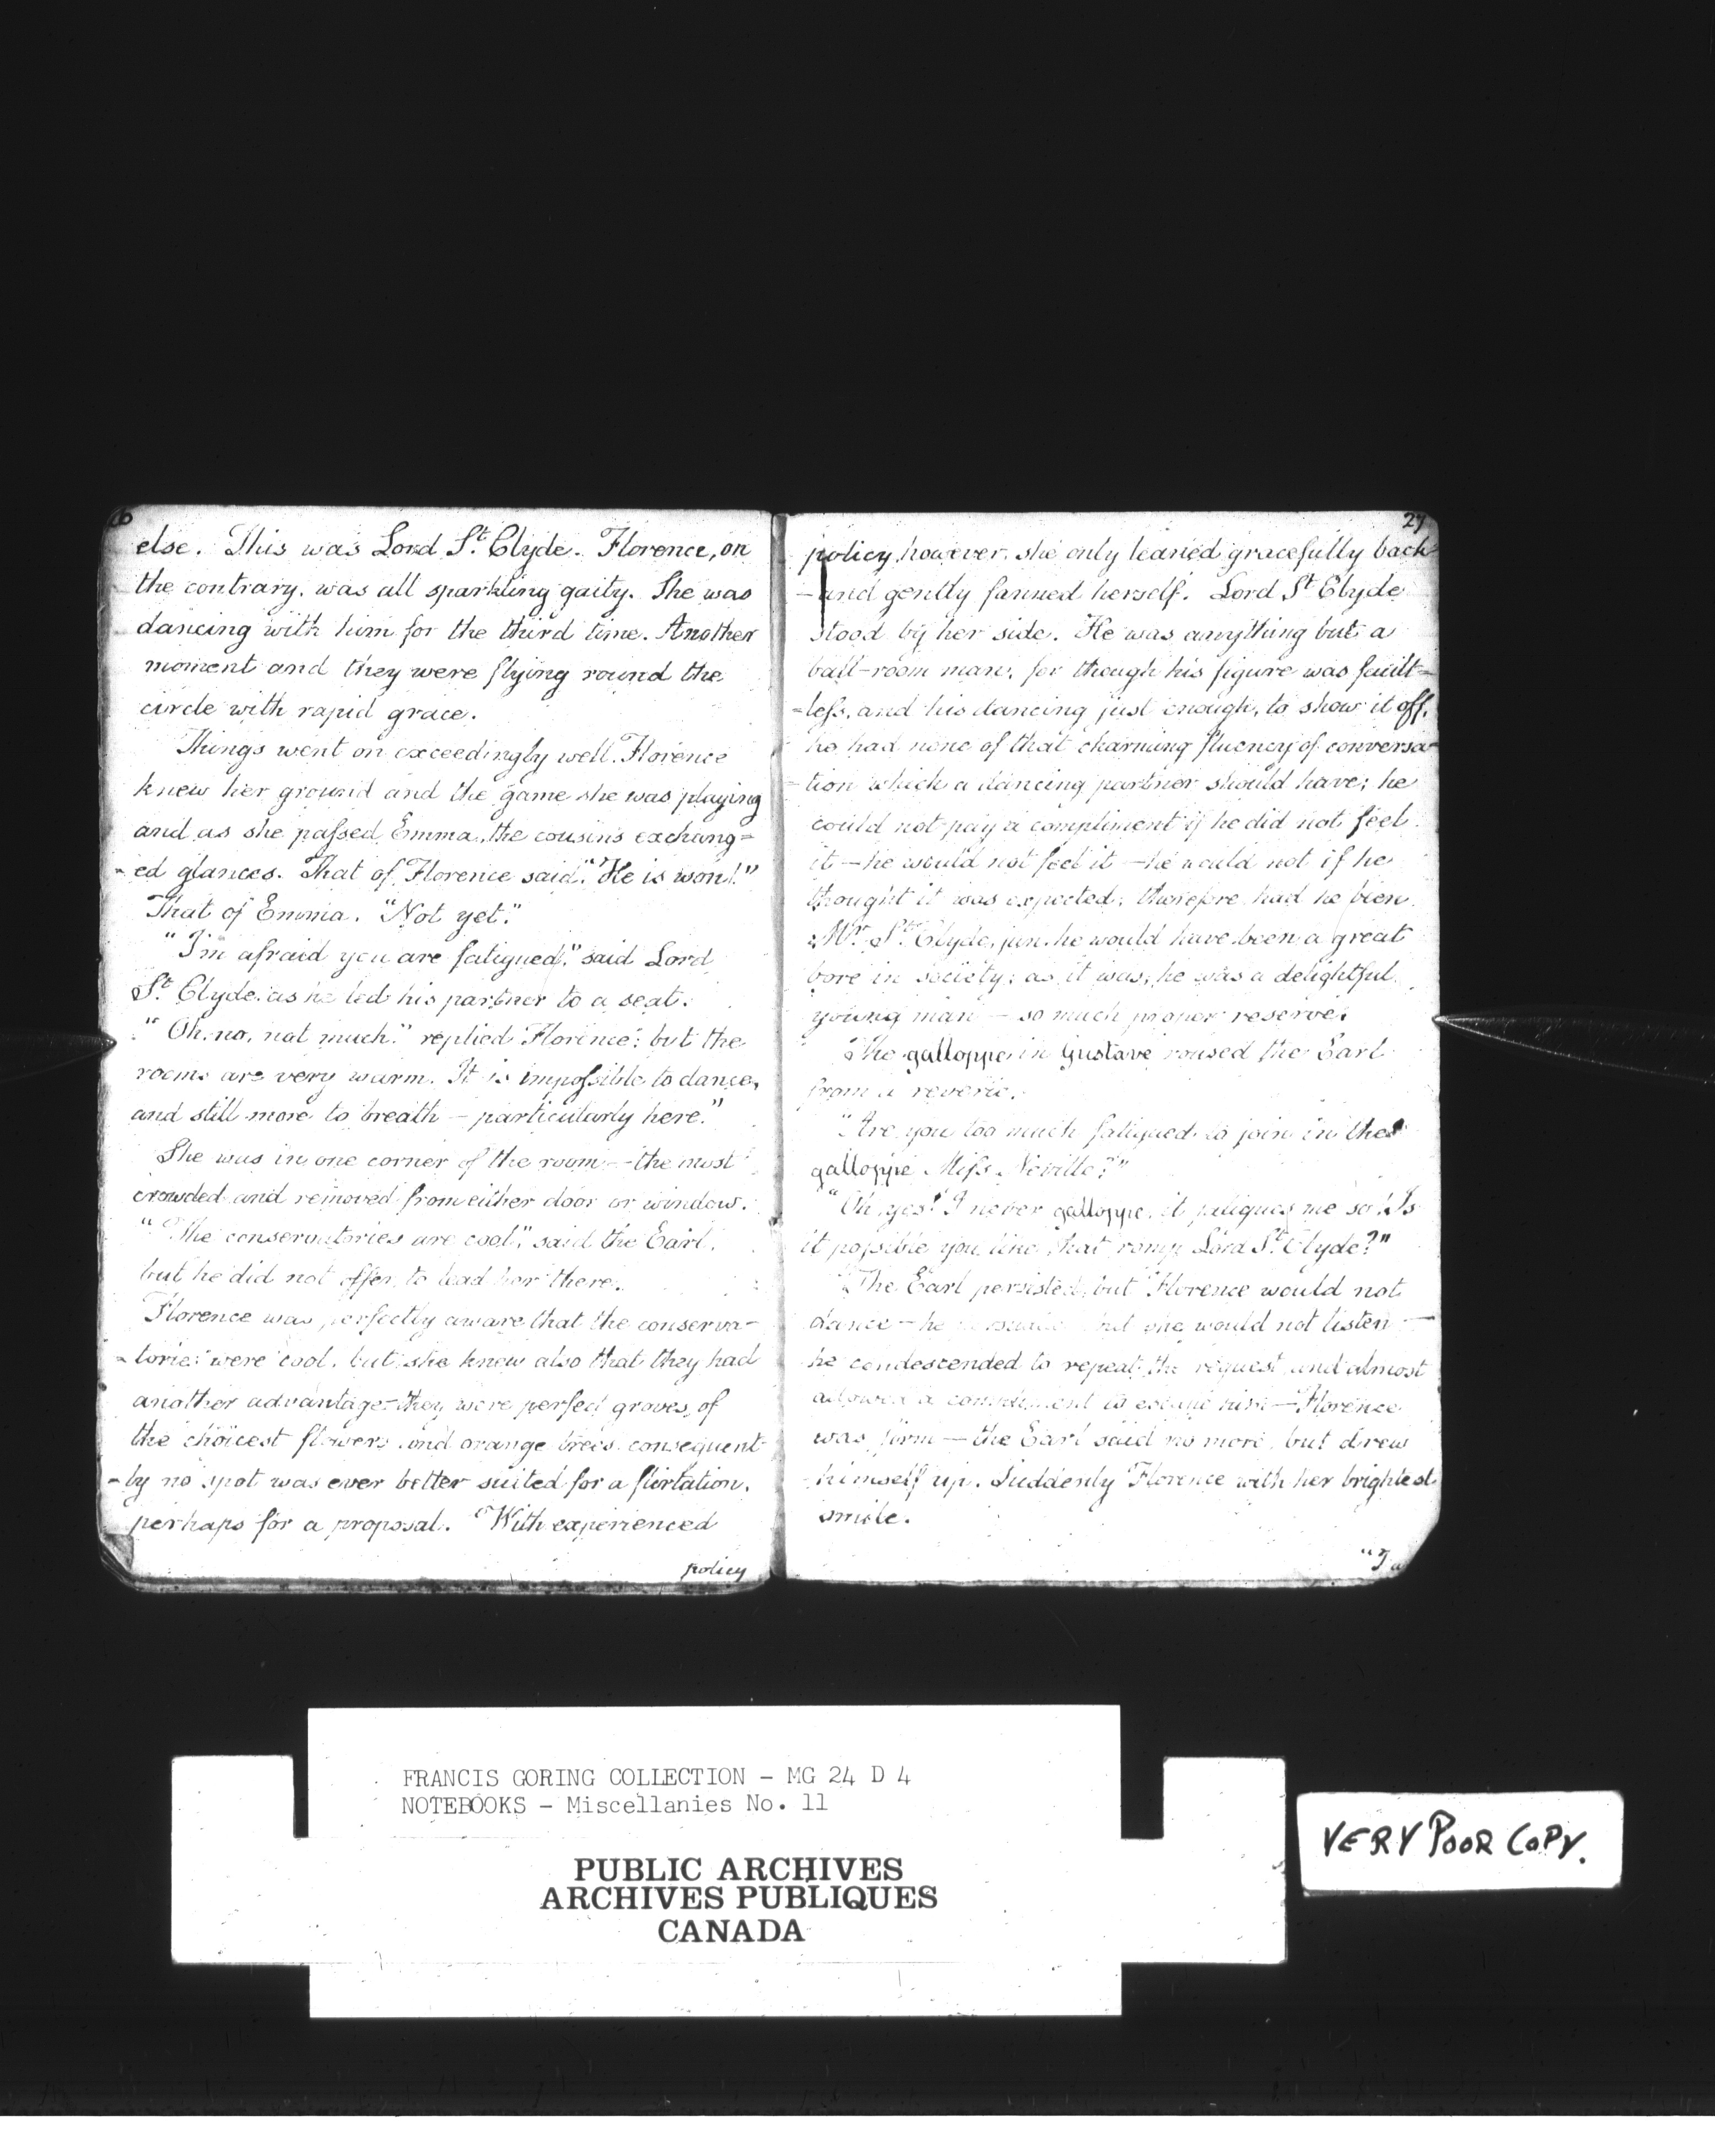 26
else. This was Lord St. Clyde. Florence, on
the contrary, was all sparkling gaity. She was
dancing with him for the third time. Another
moment and they were flying round the
circle with rapid grace.
Things went on exceedingly well. Florence
knew her ground and the game she was playing
and as she passed Emma, the cousins exchang=
-ed glances. That of Florence said, "He is won!"
That of Emma. "Not yet."
"I'm afraid you are fatigued," said Lord
St. Clyde. as he led his partner to a seat.
"Oh, no, not much." replied Florence: but the
rooms are very warm. It is impossible to dance,
and still more to breath – particularly here."
She was in one corner of the room – the most
crowded and removed from either door or window.
"The conservatories are cool," said the Earl,
but he did not offer to lead her there.
Florence was perfectly aware that the conserva-
-tories were cool, but she knew also that they had
another advantage – they were perfect groves, of
the choicest flowers and orange trees, consequent
-ly no spot was ever better suited for a flirtation,
perhaps for a proposal. With experienced
policy
27
policy, however, she only leaned gracefully back
-and gently fanned herself. Lord St. Clyde
stood by her side. He was anything but a
ball-room man, for though his figure was fault=
=less, and his dancing just enough, to show it off,
he had none of that charming fluency of conversa-
-tion which a dancing partner should have; he
could not pay a compliment if he did not feel
it – he would not feel it – he would not if he
thought it was expected; therefore had he been
Mr. St. Clyde, jun. he would have been a great
bore in society; as it was, he was a delightful
young man – so much proper reserve!
The galloppe in Gustave roused the Earl
from a reverie.
"Are you too much fatigued to join in the
galloppe Miss Neville?"
"Oh, yes! I never galloppe, it fatigues me so! Is
it possible you like that romp Lord St. Clyde?"
The Earl persisted, but Florence would not
dance – he but she would not listen –
he condescended to repeat the request and almost
allowed a compliment to escape him – Florence
was firm – the Earl said no more, but drew
himself up. Suddenly Florence with her brightest
smile.
"I a
FRANCIS GORING COLLECTION - MG 24 D 4
NOTEBOOKS - Miscellanies No. 11
PUBLIC ARCHIVES
ARCHIVES PUBLIQUES
CANADA
VERY POOR COPY.